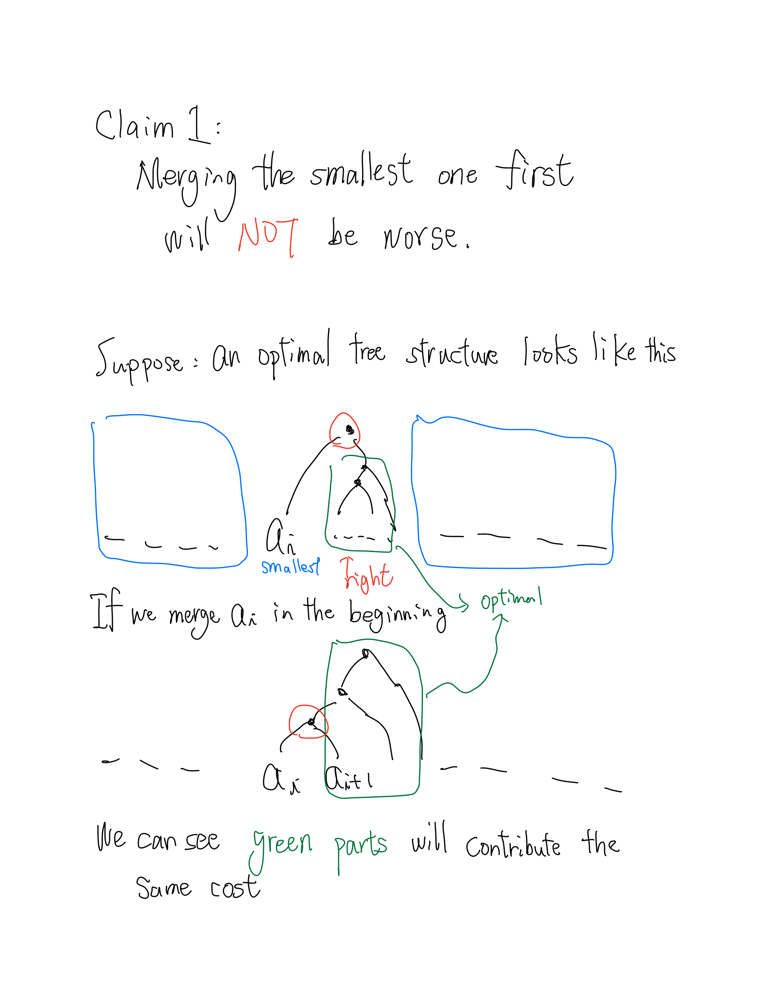 Claim 1:
Merging the smallest one first
will NOT be worse.
Suppose: an optimal tree structure looks like this
aᵢ
smallest
right
optimal
If we merge aᵢ in the beginning
aᵢ aᵢ₊₁
We can see green parts will contribute the
same cost